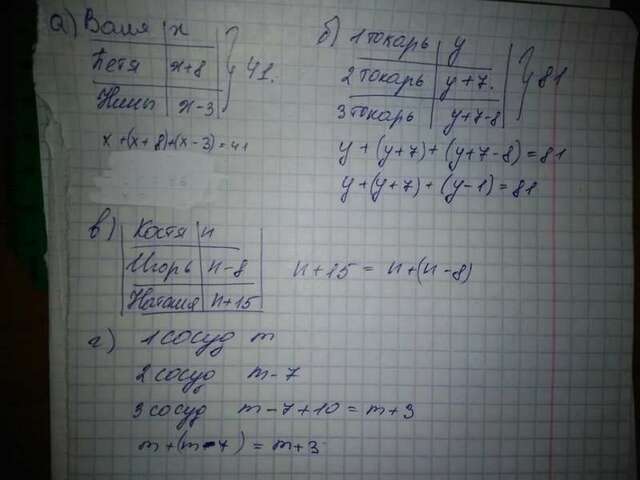 а) Ваня | x
Петя | x+8 } 41.
Нины | x-3
x+(x+8)+(x-3)=41
б) 1 токарь | y
2 токарь | y+7. } 81
3 токарь | y+7-8
y+(y+7)+(y+7-8)=81
y+(y+7)+(y-1)=81
в) Костя | n
Игорь | n-8
Наташа | n+15
n+15 = n+(n-8)
г) 1 сосуд m
2 сосуд m-7
3 сосуд m-7+10=m+3
m+(m-7)=m+3